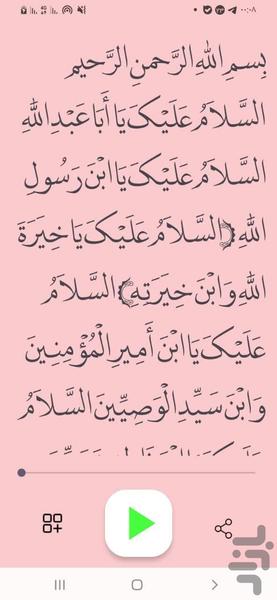 ۰۰:۰۸
بِسمِ اللهِ الرَّحمنِ الرَّحیمِ
السَّلَامُ عَلَیْکَ یَا أَبَا عَبْدِ اللَّهِ
السَّلَامُ عَلَیْکَ یَا ابْنَ رَسُولِ
اللَّهِ ﴿السَّلَامُ عَلَیْکَ یَا خِیَرَةَ
اللَّهِ وَابْنَ خِیَرَتِهِ﴾ السَّلَامُ
عَلَیْکَ یَا ابْنَ أَمِیرِ الْمُؤْمِنِینَ
وَابْنَ سَیِّدِ الْوَصِیِّینَ السَّلَامُ
بازار